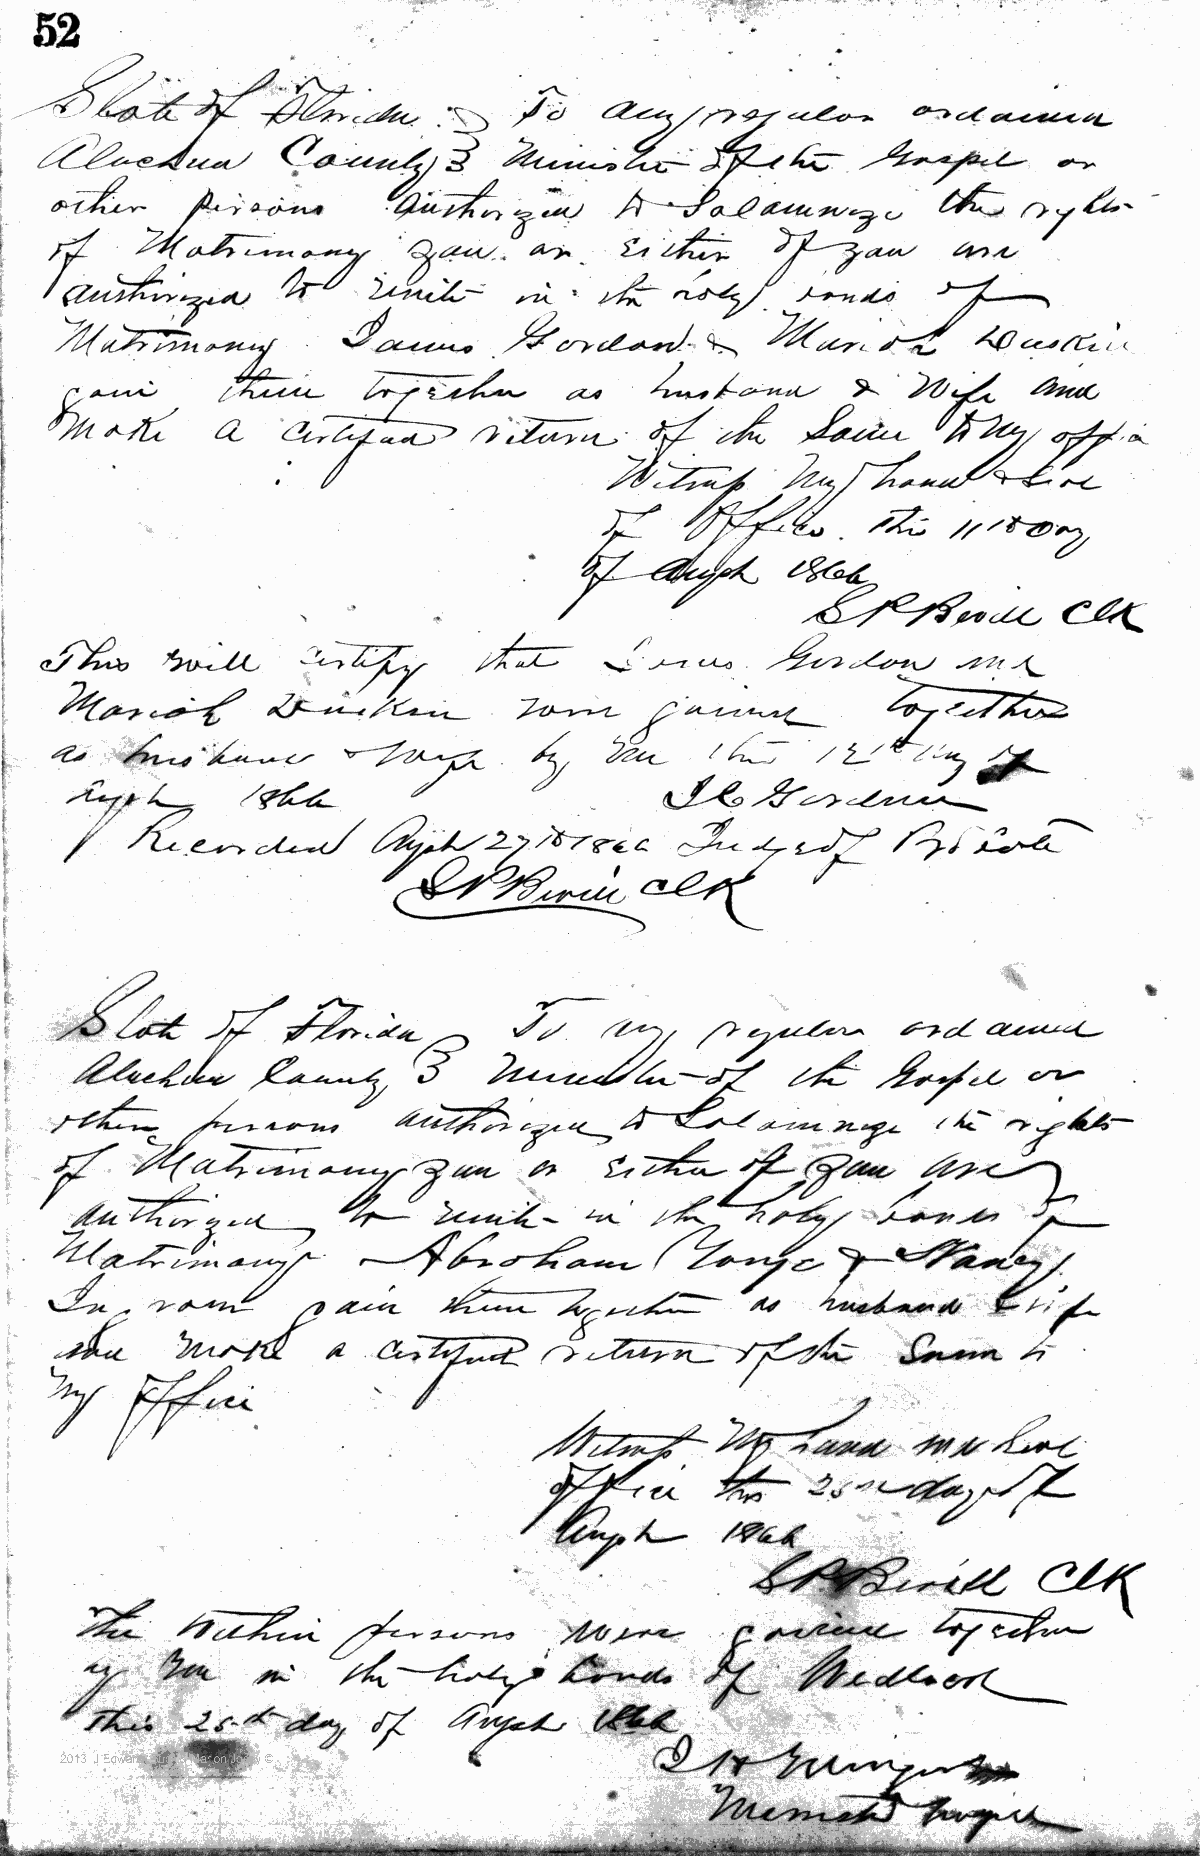 52
State of Florida } To any regular ordained
Alachua County } Minister of the Gospel or
other persons Authorized to Solamnize the rights
of Matrimony you or either of you are
authorized to unite in the holy bonds of
Matrimony James Gordon & Mariah Duskin
join them together as husband & Wife and
Make a certified return of the Same to My office
Witness My hand & Seal
of Office this 11th Day
of Augst 1866
S P Bevill Clk
This will certify that James Gordon and
Mariah Duskin were joined together
as husband & Wife by Me this 12th Day of
Augst 1866
Recorded Augst 27th 1866 Judge of Probate
S P Bevill Clk
State of Florida } To any regular ordained
Alachua County } Minister of the Gospel or
other persons authorized to Solamnize the rights
of Matrimony you or either of you are
authorized to unite in the holy bonds of
Matrimony Abraham Yonge & Nancy
join them together as husband & wife
and Make a certified return of the Same to
My Office
Witness My hand and Seal
office this day of
Augst 1866
S P Bevill Clk
The Within persons were joined together
by Me in the holy bonds of Wedlock
this 25th day of Augst 1866
2013 J Edward